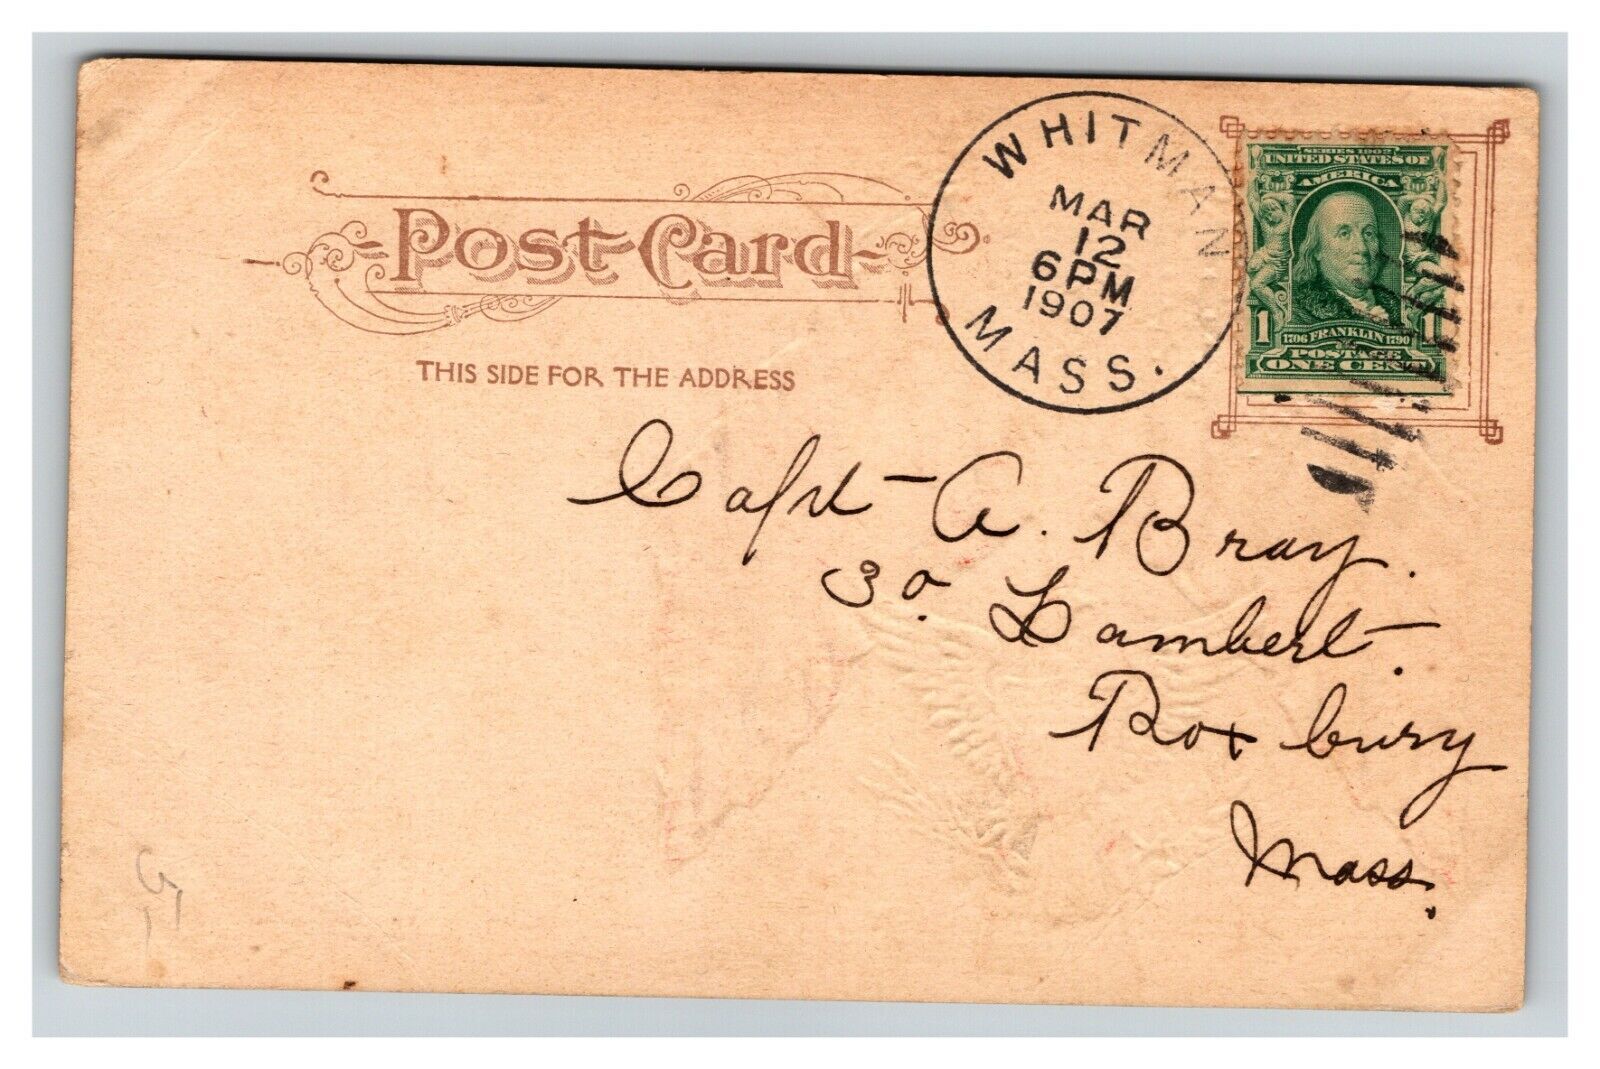 Post Card
THIS SIDE FOR THE ADDRESS
WHITMAN
MAR
12
6 PM
1907
MASS.
SERIES 1902
UNITED STATES OF
AMERICA
1 1
1706 FRANKLIN 1790
POSTAGE
ONE CENT
Capt - A. Bray.
30 Lambert.
Roxbury
Mass.